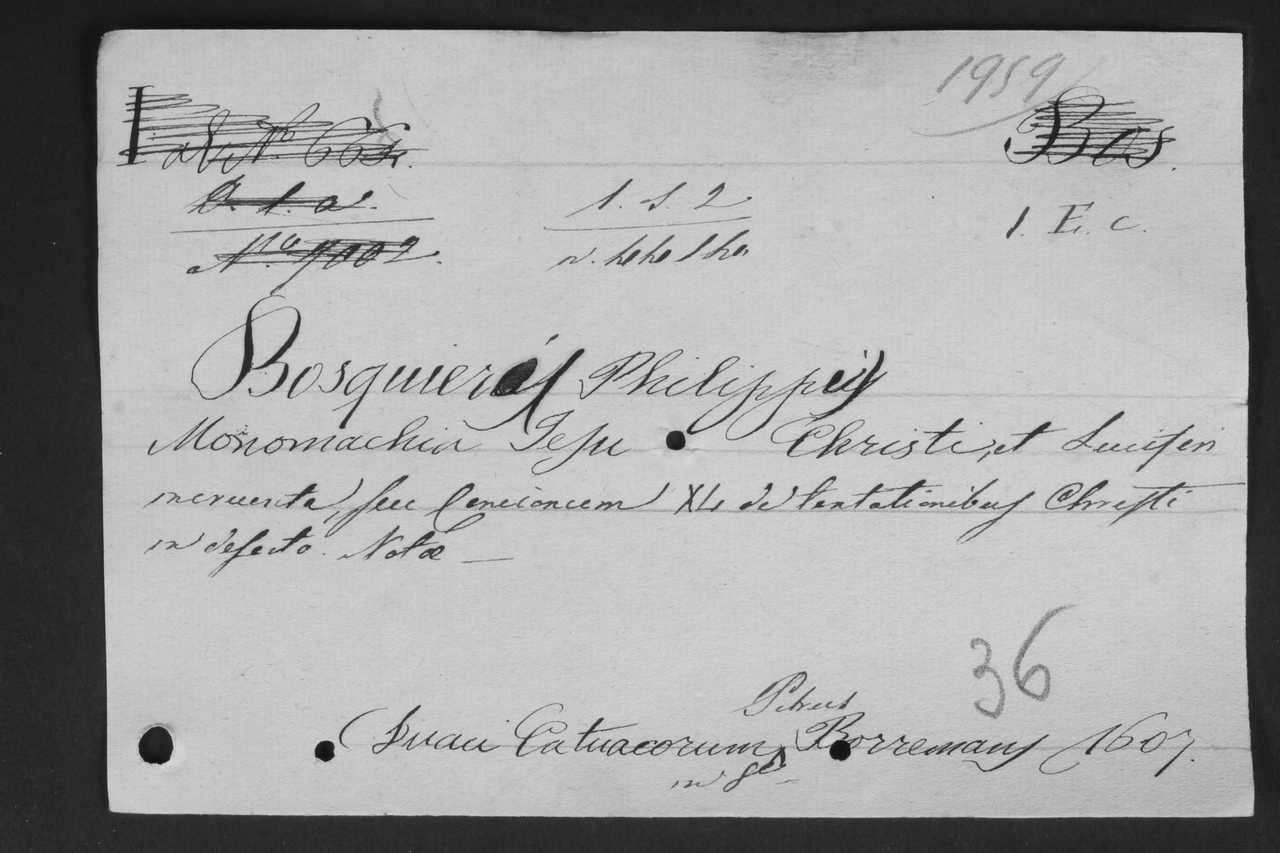 1959
Bos.
1. S. 2
1. E. c.
Nº 7002.
Bosquier (Philippe)
Monomachia Jesu Christi, et Luciferi
incruenta, seu Concionem XL de tentationibus Christi
in deserto. Notæ —
36
Petrus
(Duaci Catuacorum, Borremans 1607.
in 8º